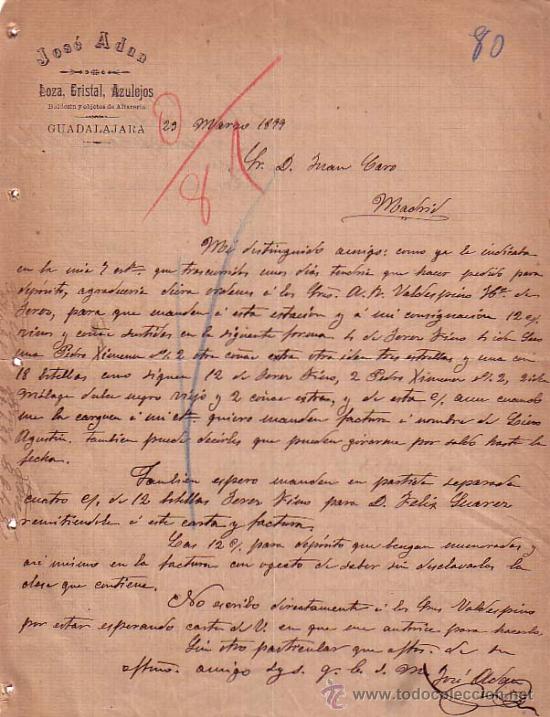 80
José Adan
Loza, Cristal, Azulejos
Baldosin y objetos de Alfarería
GUADALAJARA
23 Marzo 1899
81
Sr. D. Juan Caro
Madrid
Mi distinguido amigo: como ya le indicaba
en la mia 7 que trascurridos unos dias tendria que hacer pedido para
depósito, agradeceria diera ordenes á los Sres. A. R. Valdespino Hº de
Jerez, para que manden á esta estación y á mi consignación 12 c/
vinos y coñac surtidos en la siguiente forma 4 de Jerez fino 4 idem
una Pedro Ximenez nº 2 otra coñac extra otra idem tres estrellas y una con
18 botellas como siguen 12 de Jerez fino, 2 Pedro Ximenez nº 2, 2 idem
málaga dulce negro viejo y 2 coñac extra, y de esta c/ aun cuando
me la carguen á mi quiero manden factura á nombre de
Agustin. Tambien puede decirles que pueden girarme por saldo hasta la
fecha.
Tambien espero manden en partida separada
cuatro c/ de 12 botellas Jerez fino para D. Felix Suarez
remitiendole á este carta y factura.
Las 12 c/ para depósito que bengan numeradas y
asi mismo en la factura con ogeto de saber sin desclavarlas la
clase que contiene.
No escribo directamente á los Sres Valdespino
por estar esperando carta de V. en que me autorice para hacerlo.
Sin otro particular que aftos. de su
aftmo. amigo s.q. b. s. m. José Adan
todocoleccion
www.todocoleccion.net